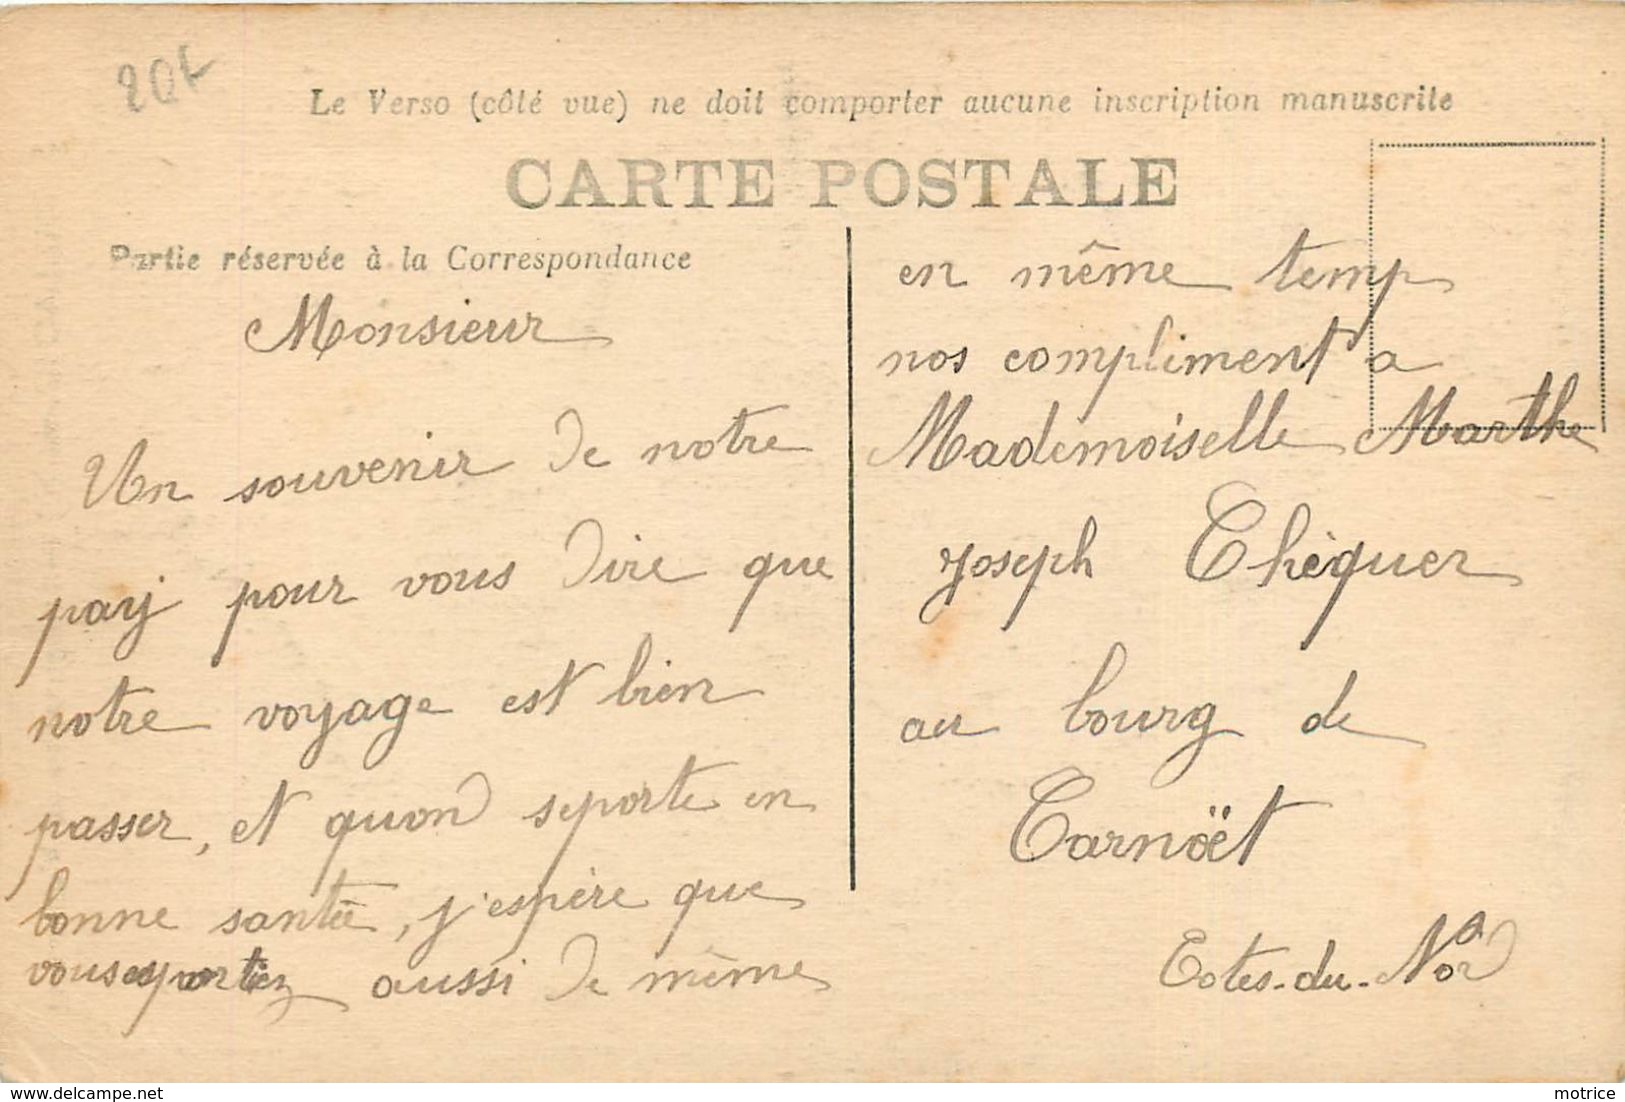 20f
Le Verso (côté vue) ne doit comporter aucune inscription manuscrite
CARTE POSTALE
Partie réservée à la Correspondance
Monsieur
Un souvenir de notre
payj pour vous dire que
notre voyage est bien
passer, et quond seporte en
bonne santée, j'espère que
vous portez aussi de même
en même temp
nos compliment a
Mademoiselle Marthe
Joseph Chèquer
au bourg de
Carnöet
Cotes-du-Nord
www.delcampe.net
motrice